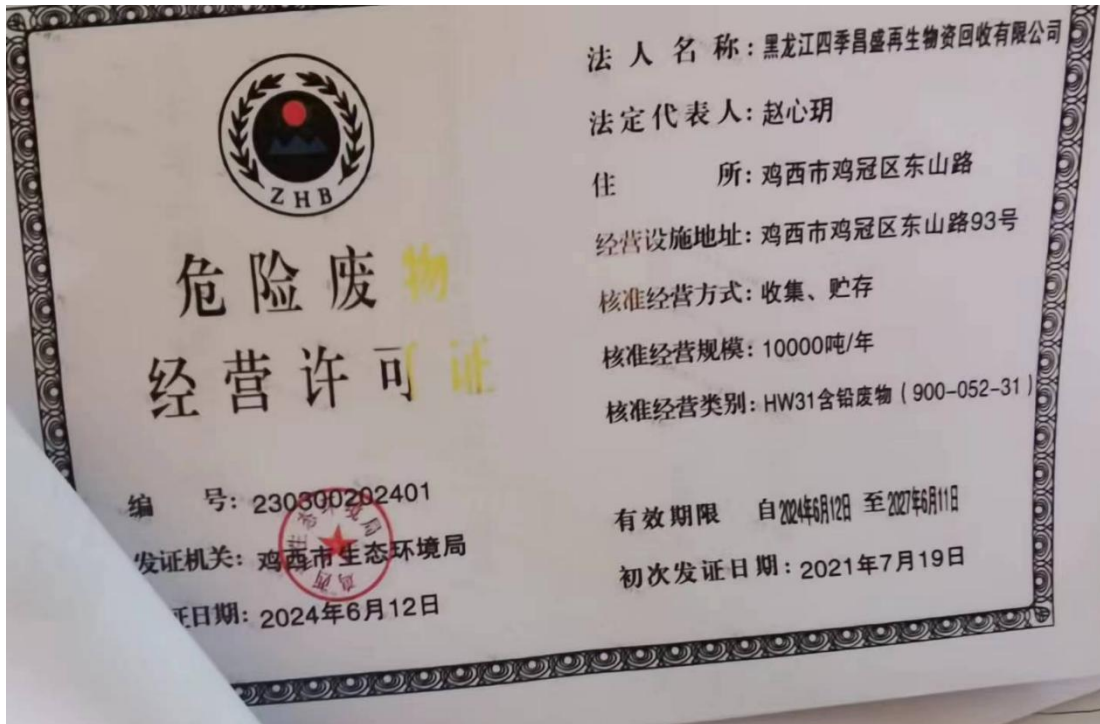 ZHB
危险废物
经营许可证
编 号：230300202401
发证机关：鸡西市生态环境局
证日期：2024年6月12日
法人名称：黑龙江四季昌盛再生物资回收有限公司
法定代表人：赵心玥
住 所：鸡西市鸡冠区东山路
经营设施地址：鸡西市鸡冠区东山路93号
核准经营方式：收集、贮存
核准经营规模：10000吨/年
核准经营类别：HW31含铅废物（900-052-31）
有效期限 自2024年6月12日 至2027年6月11日
初次发证日期：2021年7月19日